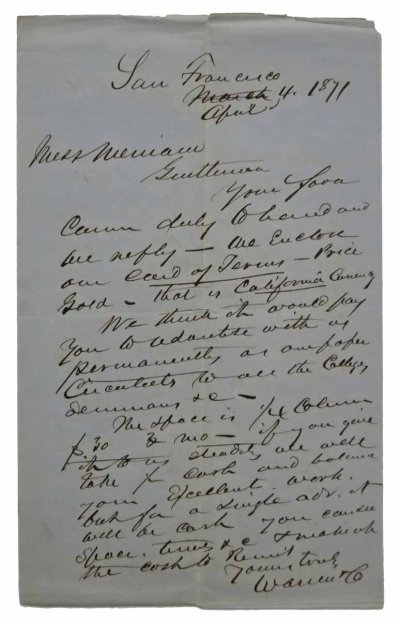 San Francisco
March 4. 1871
April
Mess Merriam
Gentlemen
Your favor
Came duly to hand and
we reply — We Enclose
our card of Terms — Price
Gold — that is California Currency
We think it would pay
you to advertise with us
permanently as our paper
Circulates to all the Colleges
Seminaries &c —
The space is 1/4 Column
$30 mo — if you give
it to us steadily we will
take cash and balance
your Excellent work.
but for a single adv. it
will be cash You can see
Space, terms &c
the cost to Remit
Yours truly
Warren & Co